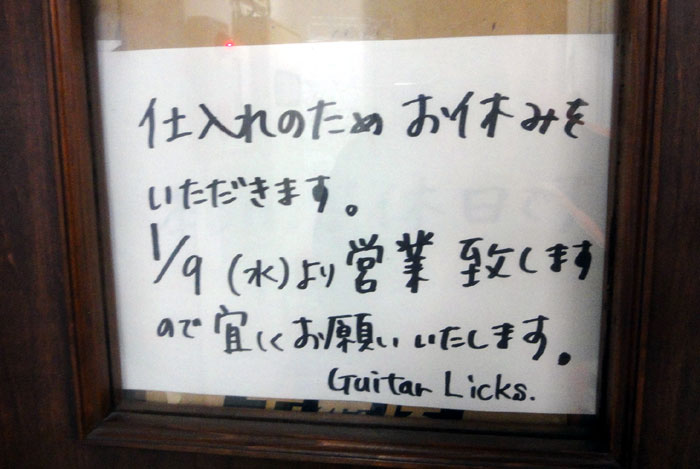 仕入れのため お休みを
いただきます。
1/9 (水)より 営業 致します
ので 宜しくお願いいたします。
Guitar Licks.